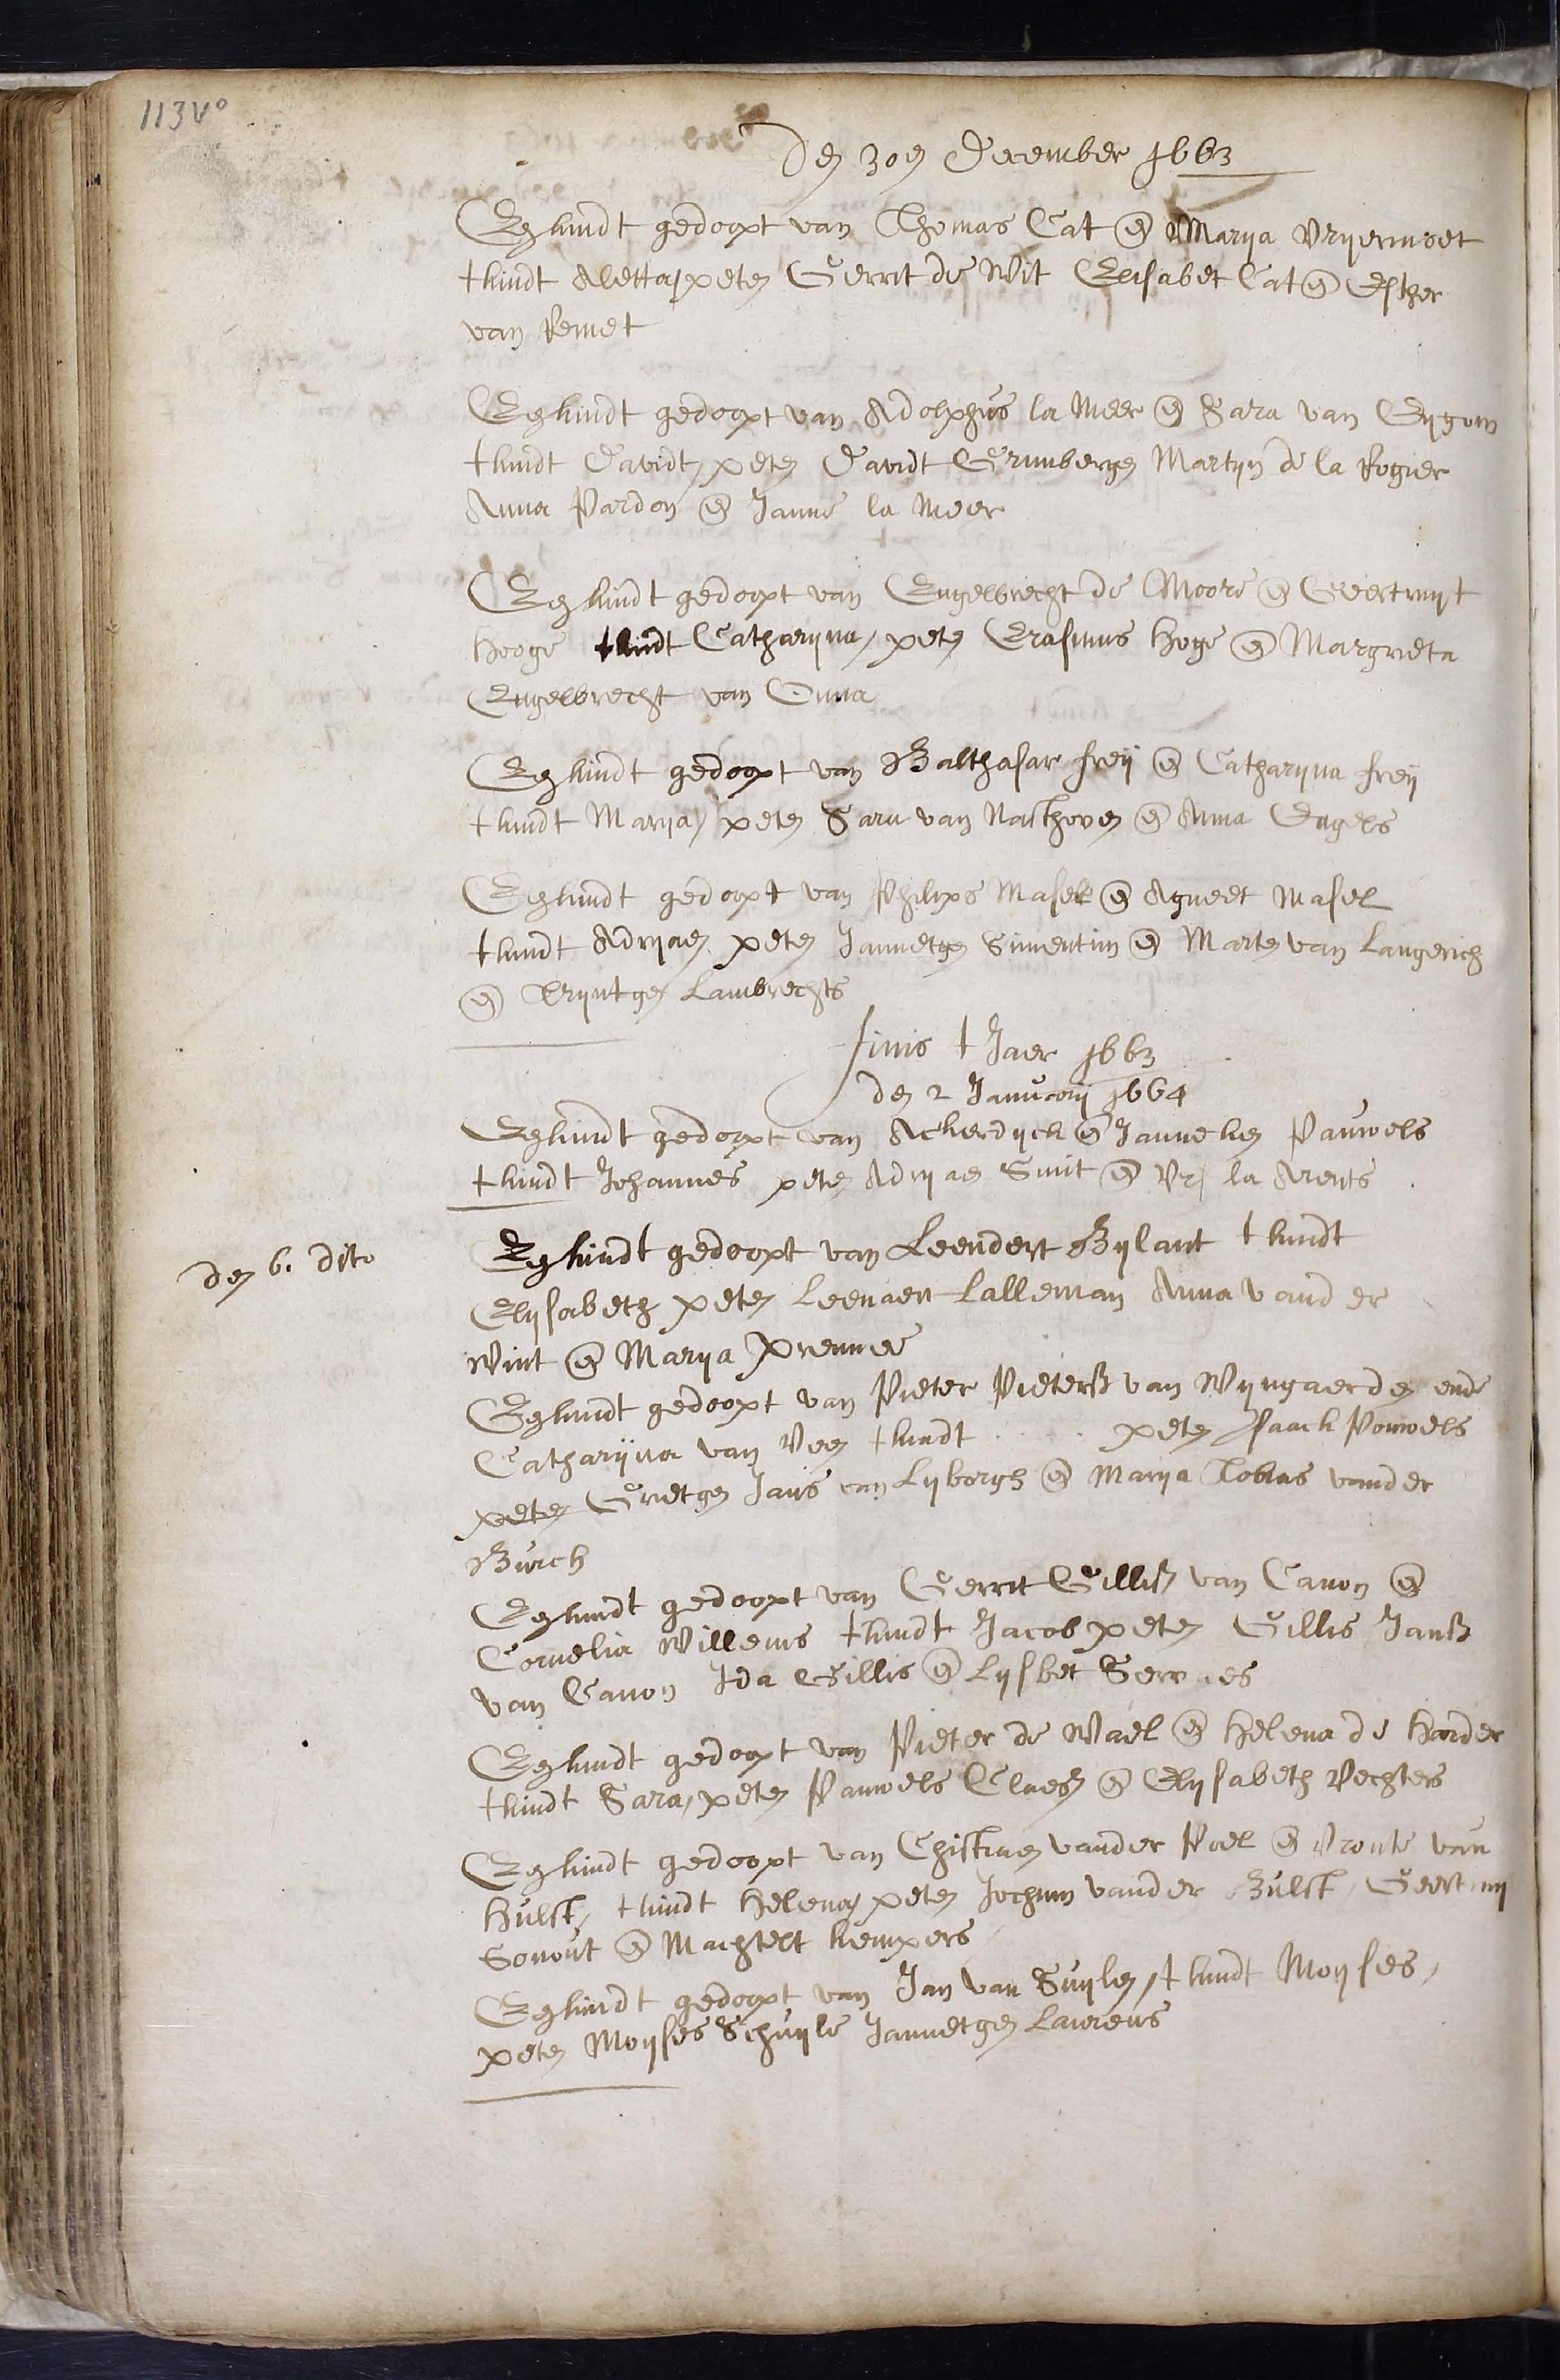 113 vº
Den 30en December 1663
Een kindt gedoopt van Thomas Cat en Marya Vryermoet
t kindt Aletta, peten Gerrit de Wit Elisabet Cat en Esther
van Remet
Een kindt gedoopt van Adolphus la Meer en Sara van Eygom
t kindt Davidt, peten Davidt Grimbergen Martyn de la Rogier
Anna Pardon en Janne la Meer
Een kindt gedoopt van Engelbrecht de Moore en Geertruyt
Hooge t kindt Catharyna, peten Erasmus Hoge en Margrieta
Engelbrecht van Onna
Een kindt gedoopt van Balthasar freij en Catharyna freij
t kindt Marya, peten Sara van Nasthoven en Anna Engels
Een kindt gedoopt van Philips Masel en Agneet Masel
t kindt Adryaen peten Jannetgen Simentim en Marten van Langerich
en Tryntgen Lambrechts
finis t Jaer 1663
den 2 Januarij 1664
Een kindt gedoopt van Ackerdyck en Janneken Pauwels
t kindt Johannes peten Adryaen Smit en la Arents
den 6. dito
Een kindt gedoopt van Leendert Bylant t kindt
Elysabeth peten Leenaert Lalleman Anna vander
Wint en Marya Premier
Een kindt gedoopt van Pieter Pieterss van Wyngaerden ende
Catharijna van Veen t kindt . . . . peten Isaack Pouwels
peten Grietgen Jans van Lyborgh en Marya Tobias vander
Burch
Een kindt gedoopt van Gerrit Gilliss van Canon en
Cornelia Willems t kindt Jacob peten Gillis Janss
van Canon Ida Gillis en Lysbet Servaes
Een kindt gedoopt van Pieter de Wael en Helena de Harder
t kindt Sara, peten Pauwels Claess en Elysabeth Vechters
Een kindt gedoopt van Christiaen vander Poel en Pronte van
Hulst, t kindt Helena, peten Jochum vander Bulst, Geertruy
Gonout en Machtelt kempers
Een kindt gedoopt van Jan van Suylen, t kindt Moyses,
peten Moyses Schuyle Jannetgen Laurens